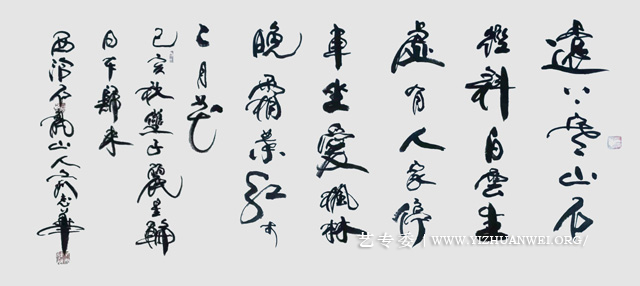 遠上寒山石
徑斜白雲生
處有人家停
車坐愛楓林
晚霜葉紅於
二月花
己亥秋雙子
歸來
山人
艺专委 | WWW.YIZHUANWEI.ORG/